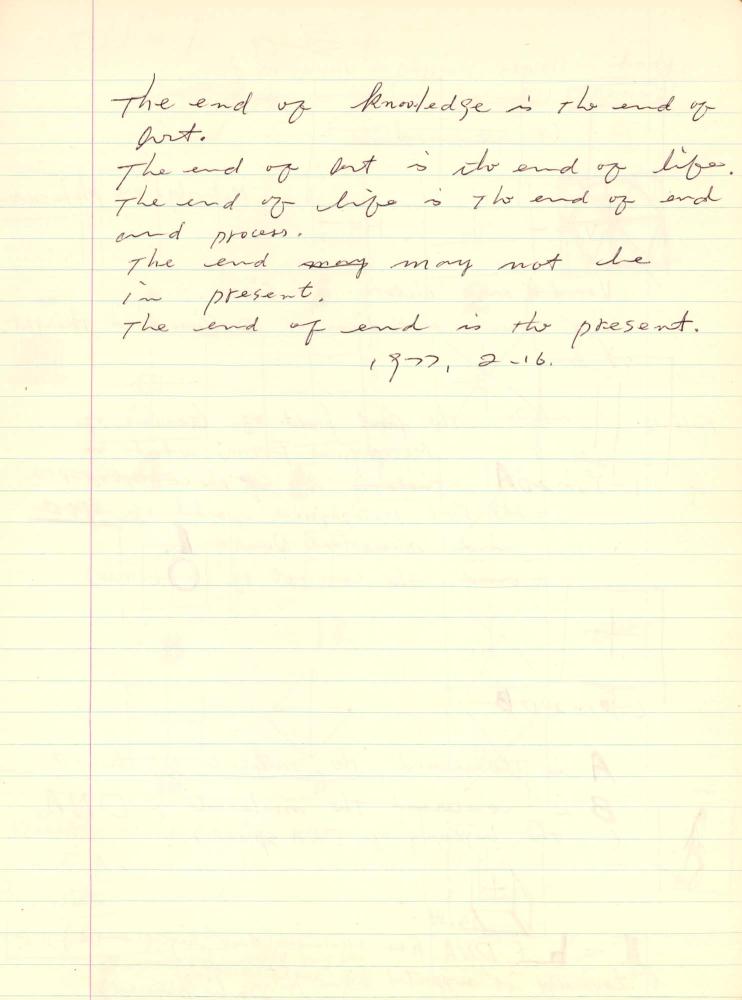 The end of knowledge is the end of
Art.
The end of Art is the end of life.
The end of life is the end of end
and process.
The end may may not be
in present.
The end of end is the present.
1977, 2-16.